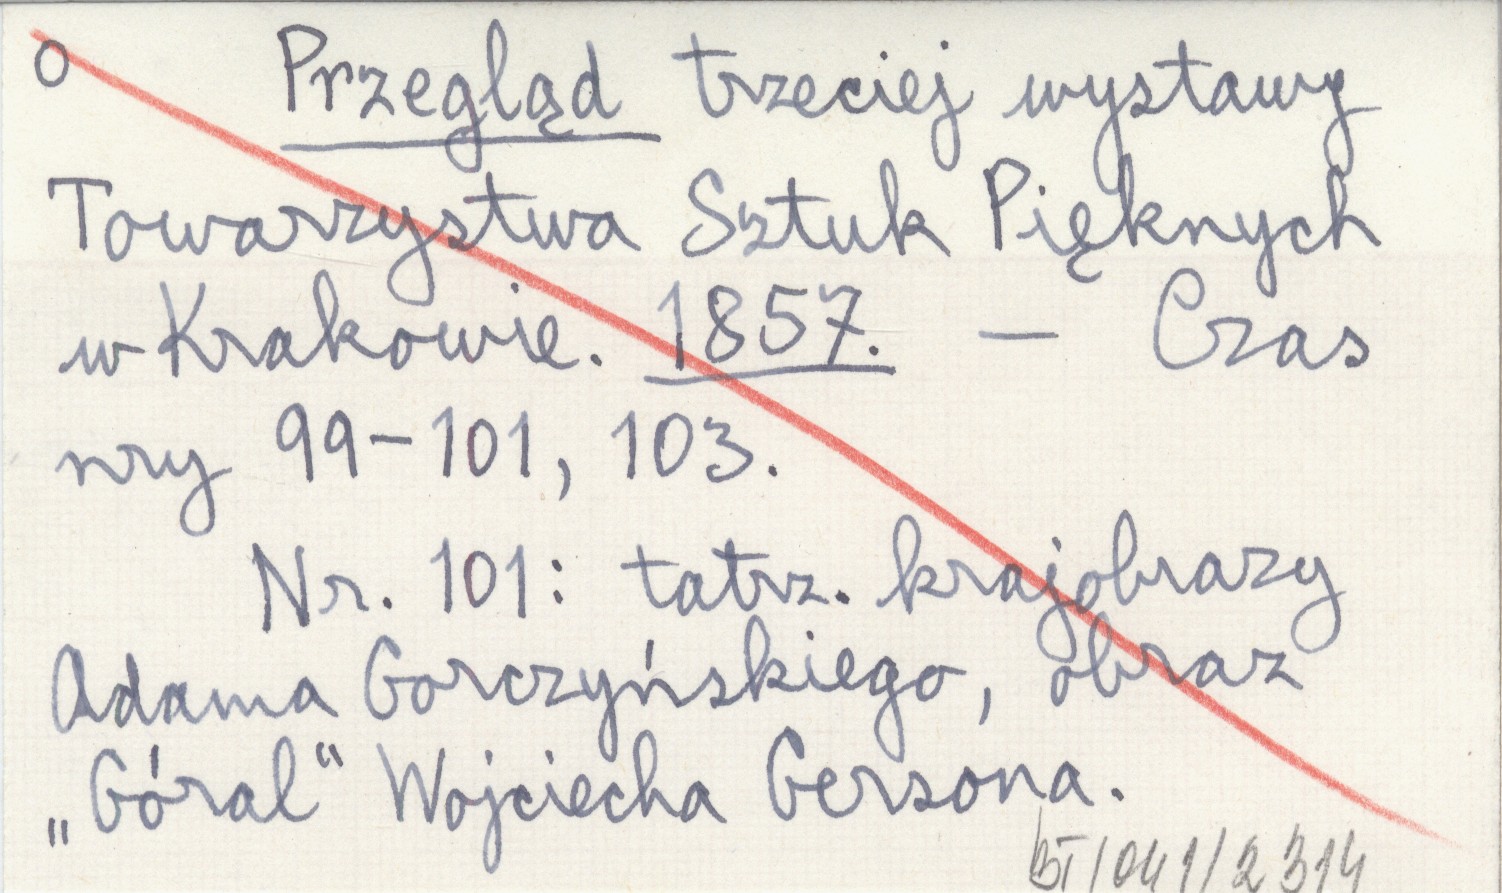 o Przegląd trzeciej wystawy
Towarzystwa Sztuk Pięknych
w Krakowie. 1857. — Czas
nry 99-101, 103.
Nr. 101: tatrz. krajobrazy
Adama Gorczyńskiego, obraz
„Góral“ Wojciecha Gersona.
BT/041/2314